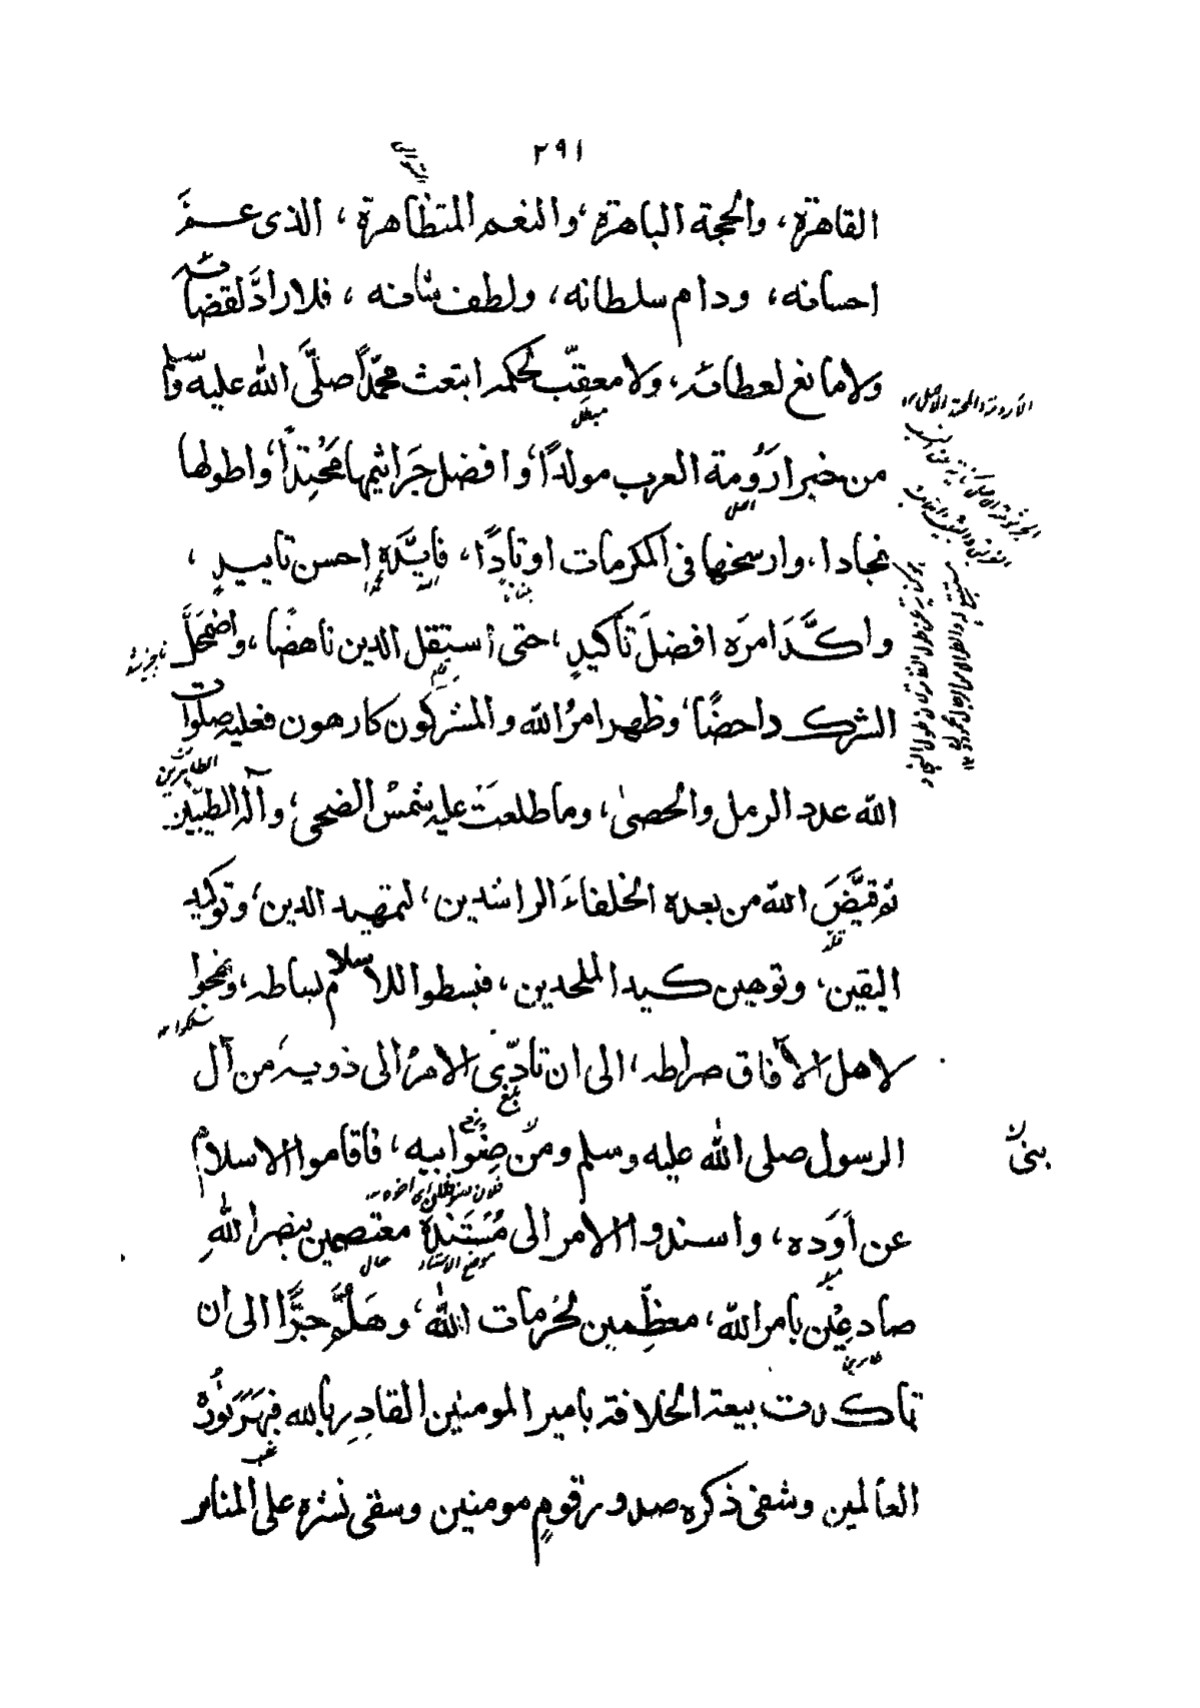 ٢٩١
القاهرة، والحجة الباهرة، والنعم المتظاهرة، الذى عمّ
احسانه، ودام سلطانه، ولطف شانه، فلا رادَّ لقضائه
ولا مانع لعطائه، ولا معقِّب لحكمه ابتعث محمّداً صلَّى الله عليه وسلم
مبطل
من خير ارَوُمة العرب مولداً، وافضل جَراثيمها مَحْتِداً، واطولها
اصل
نجادا، وارسخها فى المكرمات اوتادًا، فايَّدَه احسن تاييدٍ،
الله محمدا
واكَّدَ امرَه افضلَ تأكيدٍ، حتى استقل الدين ناهضًا، واضمحَلَّ
الشرك داحضًا، وظهر امرُ الله والمشركون كارهون فعليه صلوات
الطاهرين
الله عدد الرمل والحصىٰ، وما طلعت عليه شمسُ الضحى، وآله الطيّبين
ثم قيَّضَ الله من بعده الخلفاءَ الراشدين، لتمهيد الدين، وتوكيد
اليقين، وتوهين كيد الملحدين، فبسطوا للاسلام بساطه، ونهجوا
لاهل الآفاق صراطه، الى ان تادّى الامرُ الى ذويه من آل
بلغ
الرسول صلى الله عليه وسلم ومن صِنْو ابيه، فاقاموا الاسلام
بنى
عن اَوَده، واسندوا الامر الى مُسْتَنَدِهٖ معتصمين بنصر اللهِ
موضع الاستناد حال
صادعِيْن بامر الله، معظِّمين لحُرمات الله، وهَلُمَّ جرًّا الى ان
تاكدت بيعة الخلافة بامير المومنين القادِرِ بالله فبَهَرَ نُورُهٗ
غلب
العالمين وشفى ذكره صدور قومٍ مومنين وسقى نشره على المنابر